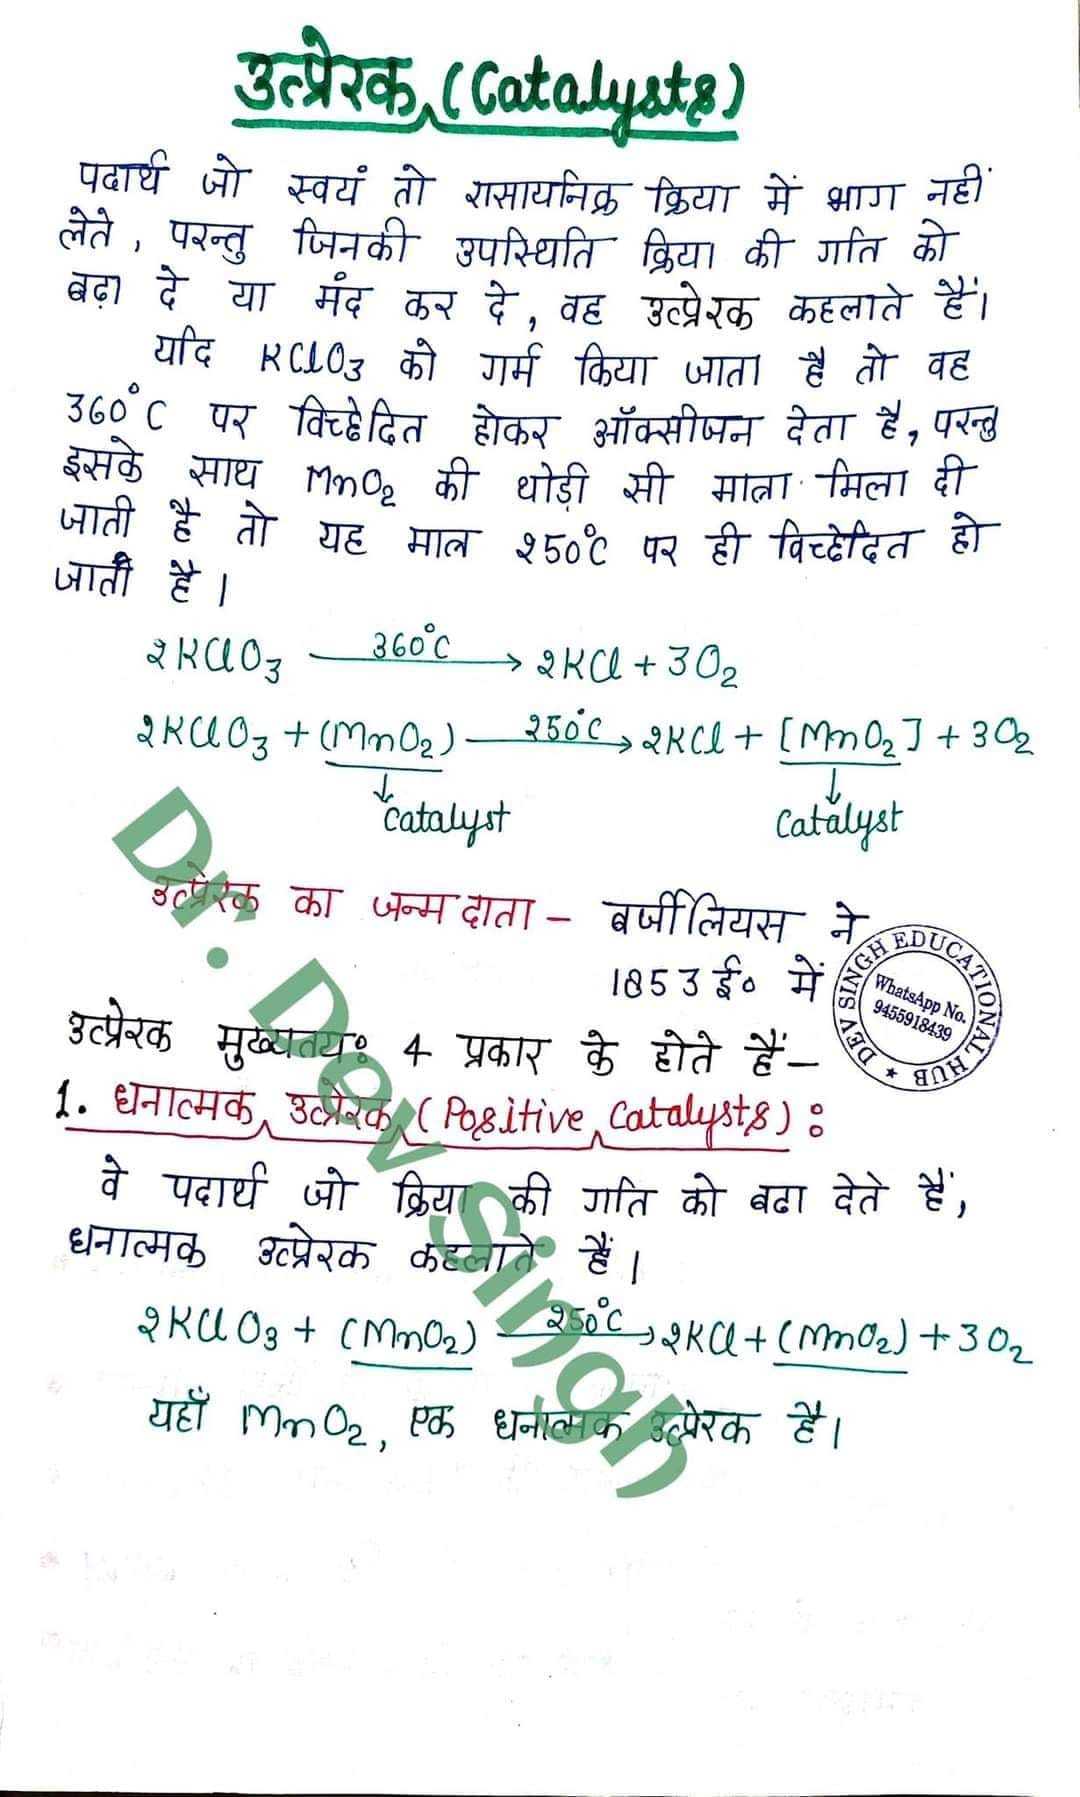 उत्प्रेरक (Catalysts)
पदार्थ जो स्वयं तो रासायनिक क्रिया में भाग नहीं
लेते, परन्तु जिनकी उपस्थिति क्रिया की गति को
बढ़ा दे या मंद कर दे, वह उत्प्रेरक कहलाते हैं।
यदि KClO3 को गर्म किया जाता है तो वह
360°C पर विच्छेदित होकर ऑक्सीजन देता है, परन्तु
इसके साथ MnO2 की थोड़ी सी मात्रा मिला दी
जाती है तो यह मात्र 250°C पर ही विच्छेदित हो
जाती है।
2KClO3 360°C → 2KCl + 3O2
2KClO3 + (MnO2) 250°C → 2KCl + [MnO2] + 3O2
↓ ↓
Catalyst Catalyst
उत्प्रेरक का जन्मदाता - बर्जीलियस ने
1853 ई० में
उत्प्रेरक मुख्यतयः 4 प्रकार के होते हैं -
1. धनात्मक उत्प्रेरक (Positive Catalysts) :
वे पदार्थ जो क्रिया की गति को बढा देते हैं,
धनात्मक उत्प्रेरक कहलाते हैं।
2KClO3 + (MnO2) 250°C → 2KCl + (MnO2) + 3O2
यहाँ MnO2, एक धनात्मक उत्प्रेरक है।
Dr. Dev Singh
DEV SINGH EDUCATIONAL HUB
WhatsApp No.
9455918439